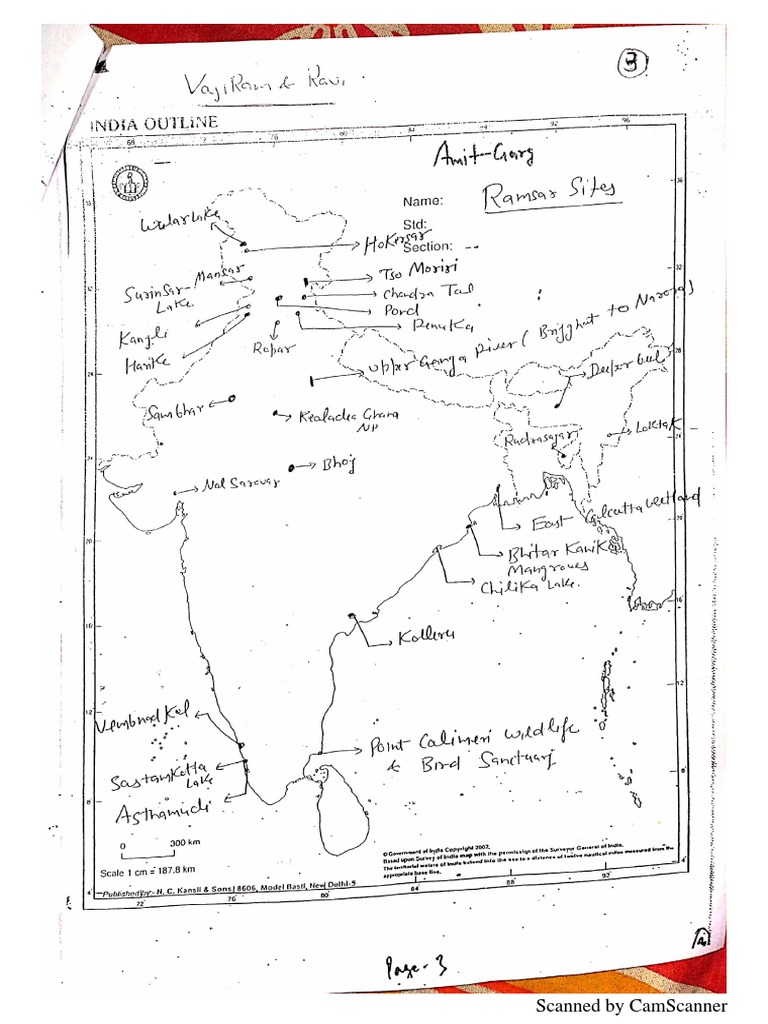 3
VajiRam & Ravi
INDIA OUTLINE
68
76
80
84
88
96
Amit Garg
Name: Ramsar Sites
Std:
Section:
Wular Lake
Hokersar
Surinsar- Mansar
Lake
Tso Moriri
Chandra Tal
Pond
Renuka
Kangli
Harike
Ropar
Upper Ganga River (Brijghat to Narora)
Deepor beel
Sambhar
Keoladea Ghana
NP
Loktak
Rudrasagar
Bhoj
Nal Sarovar
East Calcutta wetland
Bhitar Kanika
Mangroves
Chilika Lake.
Kolleru
Vembnad Kol
Point Calimeri Wildlife
& Bird Sanctuary
Sastamkotta
Lake
Asthamudi
36
32
28
24
20
16
12
8
4
28
24
20
16
12
8
4
0 300 km
Scale 1 cm = 187.8 km
©Government of India Copyright 2002.
Based upon Survey of India map with the permission of the Surveyor General of India.
The territorial waters of India extend into the sea to a distance of twelve nautical miles measured from the
appropriate base line.
Published by:- N. C. Kansil & Sons/ 8606, Model Basti, New Delhi-5
72
76
80
84
88
92
Page-3
Scanned by CamScanner